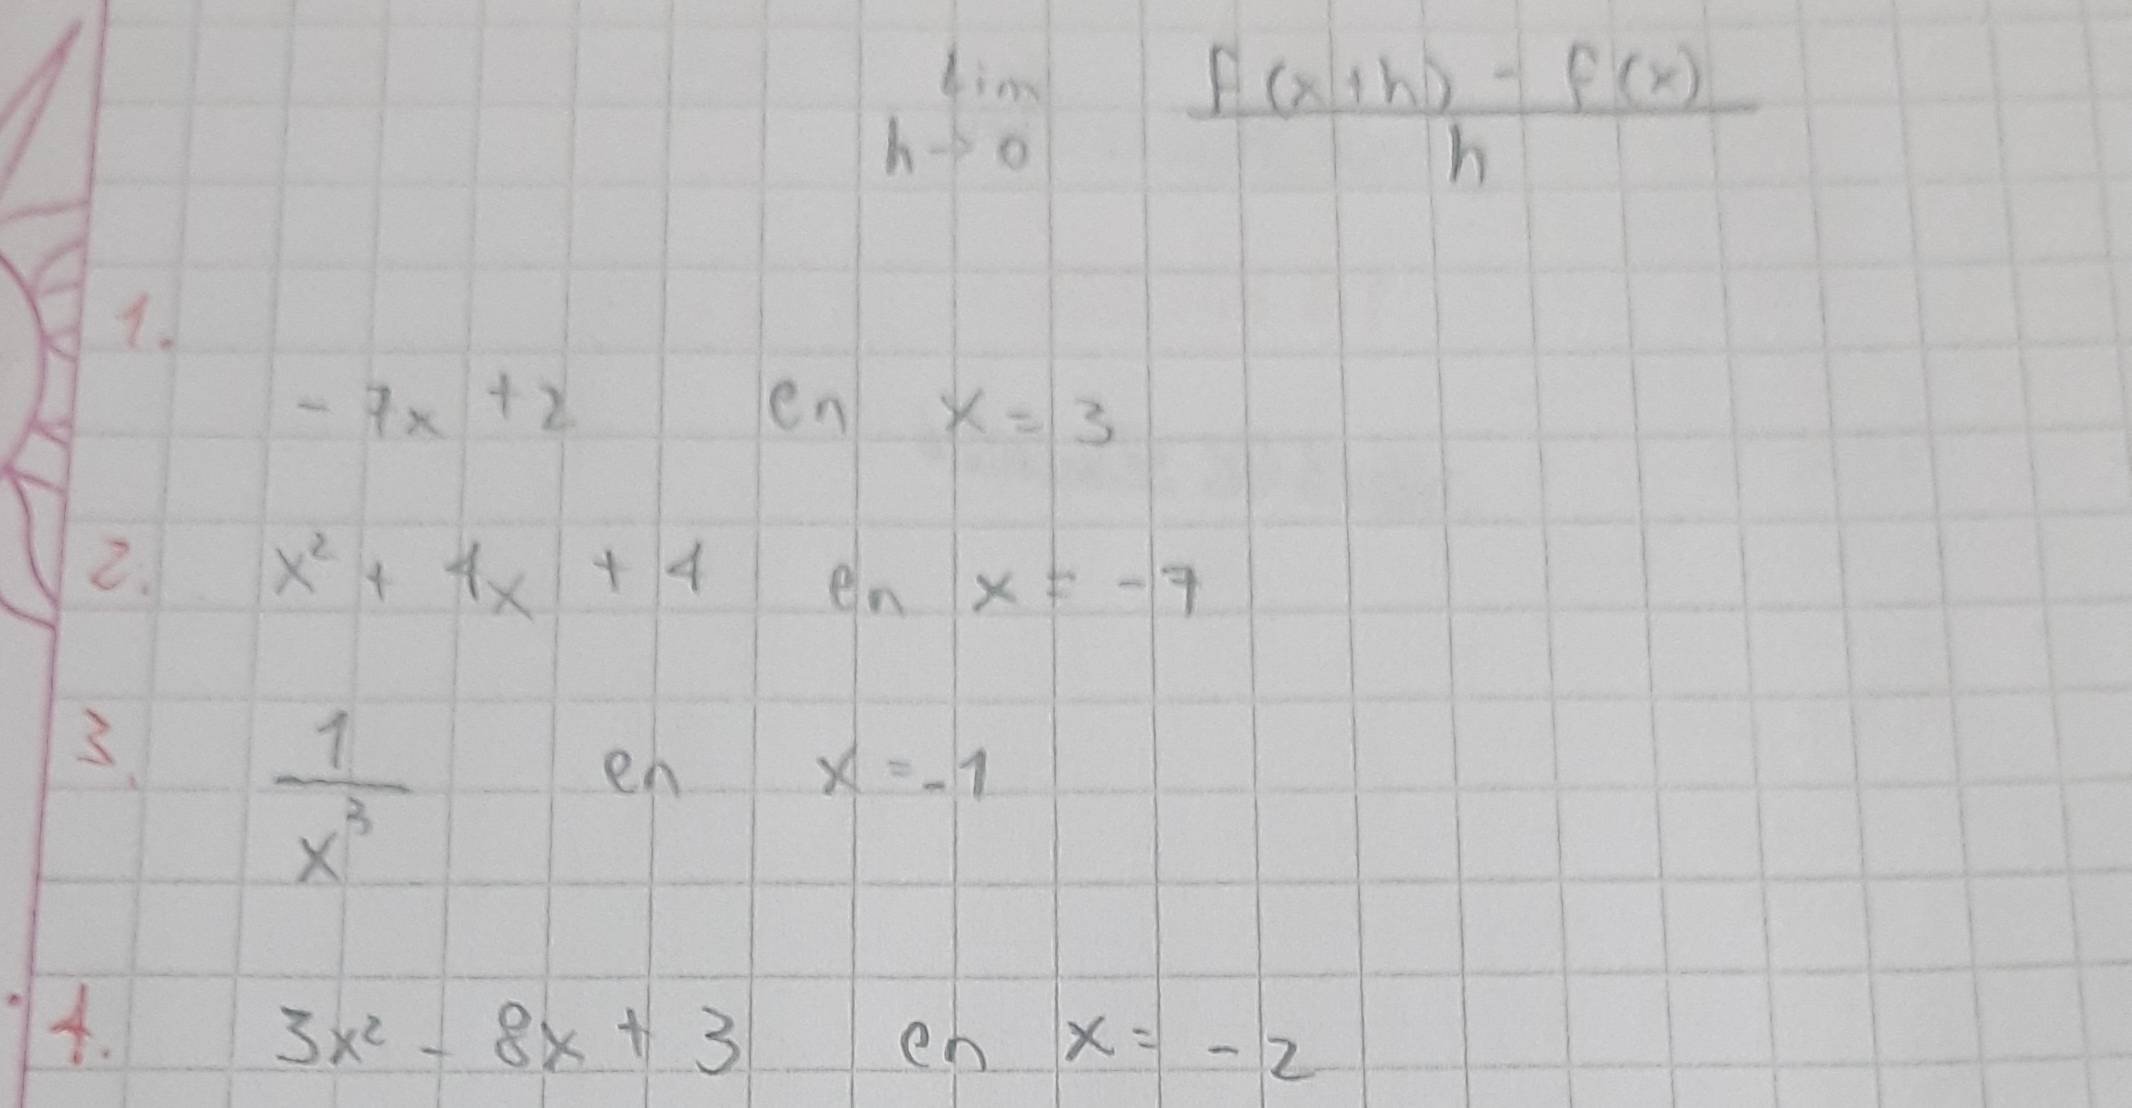 lim f(x+h) - f(x)
h→0 h
1.
-7x +2 en x = 3
2. x² + 4x + 4 en x = -7
3. 1
x³ en x = -1
4. 3x² - 8x + 3 en x = -2